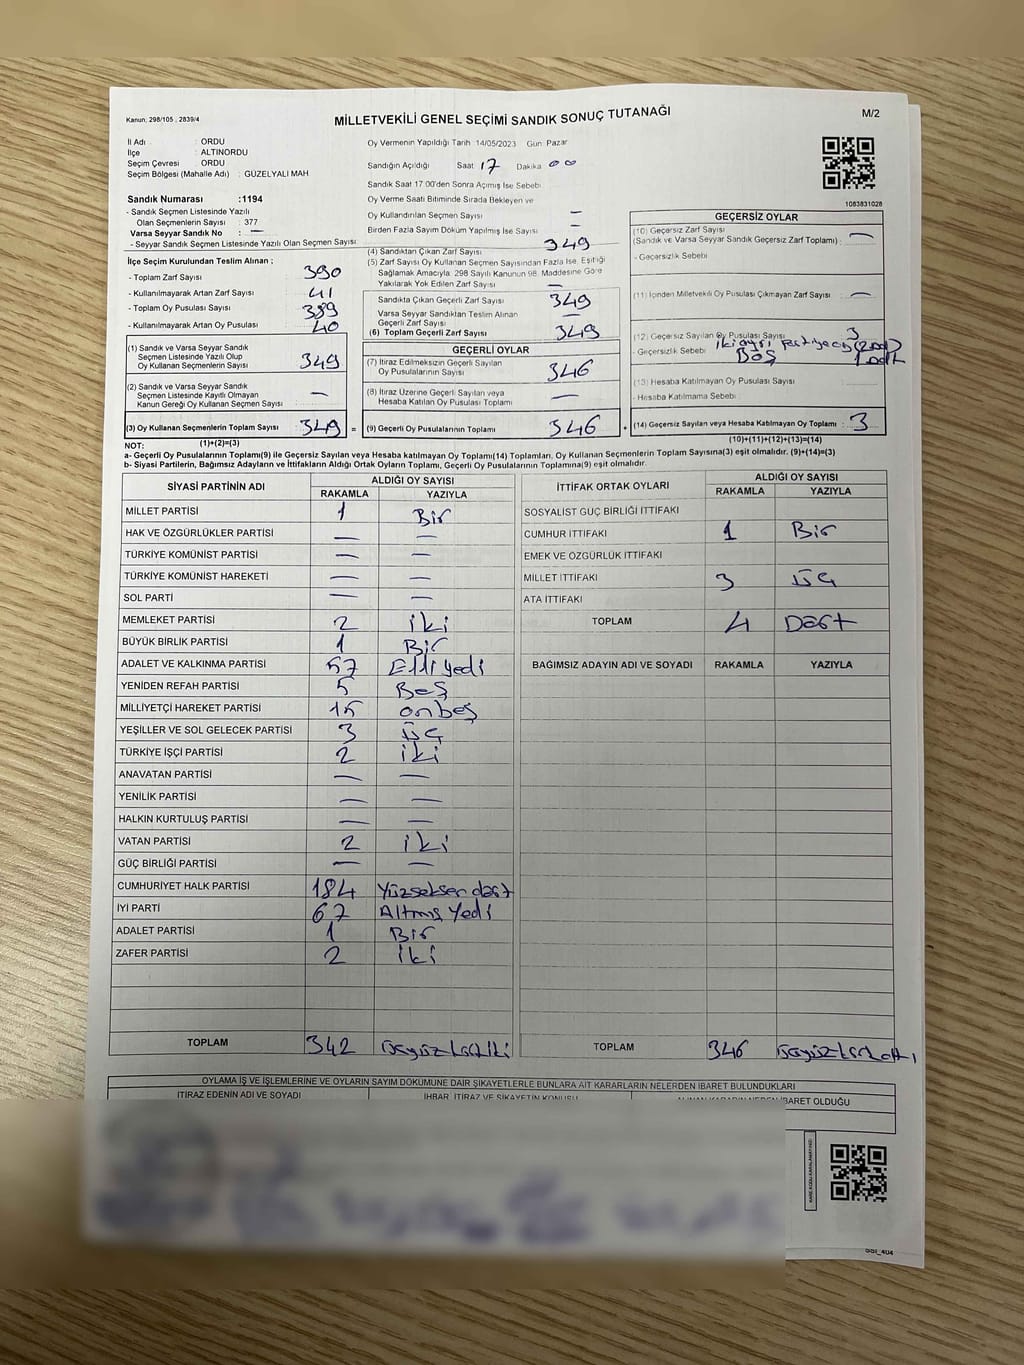 Kanun; 298/105 ; 2839/4
MİLLETVEKİLİ GENEL SEÇİMİ SANDIK SONUÇ TUTANAĞI
M/2
İl Adı : ORDU
İlçe : ALTINORDU
Seçim Çevresi : ORDU
Seçim Bölgesi (Mahalle Adı) : GÜZELYALI MAH
Sandık Numarası :1194
- Sandık Seçmen Listesinde Yazılı
Olan Seçmenlerin Sayısı : 377
Varsa Seyyar Sandık No : —
- Seyyar Sandık Seçmen Listesinde Yazılı Olan Seçmen Sayısı:
Oy Vermenin Yapıldığı Tarih 14/05/2023 Gün Pazar
Sandığın Açıldığı Saat 17 Dakika 00
Sandık Saat 17:00'den Sonra Açımış İse Sebebi
Oy Verme Saati Bitiminde Sırada Bekleyen ve
Oy Kullandırılan Seçmen Sayısı —
Birden Fazla Sayım Döküm Yapılmış İse Sayısı —
1083831028
İlçe Seçim Kurulundan Teslim Alınan ;
- Toplam Zarf Sayısı : 390
- Kullanılmayarak Artan Zarf Sayısı : 41
- Toplam Oy Pusulası Sayısı : 389
- Kullanılmayarak Artan Oy Pusulası : 40
(1) Sandık ve Varsa Seyyar Sandık
Seçmen Listesinde Yazılı Olup
Oy Kullanan Seçmenlerin Sayısı : 349
(2) Sandık ve Varsa Seyyar Sandık
Seçmen Listesinde Kayıtlı Olmayan
Kanun Gereği Oy Kullanan Seçmen Sayısı : —
(3) Oy Kullanan Seçmenlerin Toplam Sayısı : 349 =
(4) Sandıktan Çıkan Zarf Sayısı 349
(5) Zarf Sayısı Oy Kullanan Seçmen Sayısından Fazla İse, Eşitliği
Sağlamak Amacıyla; 298 Sayılı Kanunun 98. Maddesine Göre
Yakılarak Yok Edilen Zarf Sayısı : —
Sandıkta Çıkan Geçerli Zarf Sayısı 349
Varsa Seyyar Sandıktan Teslim Alınan
Geçerli Zarf Sayısı : —
(6) Toplam Geçerli Zarf Sayısı 349
GEÇERLİ OYLAR
(7) İtiraz Edilmeksizin Geçerli Sayılan
Oy Pusulalarının Sayısı : 346
(8) İtiraz Üzerine Geçerli Sayılan veya
Hesaba Katılan Oy Pusulası Toplamı —
(9) Geçerli Oy Pusulalarının Toplamı 346 +
GEÇERSİZ OYLAR
(10) Geçersiz Zarf Sayısı
(Sandık ve Varsa Seyyar Sandık Geçersiz Zarf Toplamı) : —
- Geçersizlik Sebebi
(11) İçinden Milletvekili Oy Pusulası Çıkmayan Zarf Sayısı —
(12) Geçersiz Sayılan Oy Pusulası Sayısı 3
- Geçersizlik Sebebi iki ayrı partiye oy (2 adet)
Boş 1 adet
(13) Hesaba Katılmayan Oy Pusulası Sayısı
- Hesaba Katılmama Sebebi
(14) Geçersiz Sayılan veya Hesaba Katılmayan Oy Toplamı : 3
NOT: (1)+(2)=(3) (10)+(11)+(12)+(13)=(14)
a- Geçerli Oy Pusulalarının Toplamı(9) ile Geçersiz Sayılan veya Hesaba Katılmayan Oy Toplamı(14) Toplamları, Oy Kullanan Seçmenlerin Toplam Sayısına(3) eşit olmalıdır. (9)+(14)=(3)
b- Siyasi Partilerin, Bağımsız Adayların ve İttifakların Aldığı Ortak Oyların Toplamı, Geçerli Oy Pusulalarının Toplamına(9) eşit olmalıdır.
SİYASİ PARTİNİN ADI ALDIĞI OY SAYISI
RAKAMLA YAZIYLA
MİLLET PARTİSİ 1 Bir
HAK VE ÖZGÜRLÜKLER PARTİSİ — —
TÜRKİYE KOMÜNİST PARTİSİ — —
TÜRKİYE KOMÜNİST HAREKETİ — —
SOL PARTİ — —
MEMLEKET PARTİSİ 2 iki
BÜYÜK BİRLİK PARTİSİ 1 Bir
ADALET VE KALKINMA PARTİSİ 57 Elli yedi
YENİDEN REFAH PARTİSİ 5 Beş
MİLLİYETÇİ HAREKET PARTİSİ 15 onbeş
YEŞİLLER VE SOL GELECEK PARTİSİ 3 üç
TÜRKİYE İŞÇİ PARTİSİ 2 iki
ANAVATAN PARTİSİ — —
YENİLİK PARTİSİ — —
HALKIN KURTULUŞ PARTİSİ — —
VATAN PARTİSİ 2 iki
GÜÇ BİRLİĞİ PARTİSİ — —
CUMHURİYET HALK PARTİSİ 184 Yüzseksen dört
İYİ PARTİ 67 Altmış Yedi
ADALET PARTİSİ 1 Bir
ZAFER PARTİSİ 2 iki
TOPLAM 342
İTTİFAK ORTAK OYLARI ALDIĞI OY SAYISI
RAKAMLA YAZIYLA
SOSYALİST GÜÇ BİRLİĞİ İTTİFAKI
CUMHUR İTTİFAKI 1 Bir
EMEK VE ÖZGÜRLÜK İTTİFAKI
MİLLET İTTİFAKI 3 üç
ATA İTTİFAKI
TOPLAM 4 Dört
BAĞIMSIZ ADAYIN ADI VE SOYADI RAKAMLA YAZIYLA
TOPLAM 346
OYLAMA İŞ VE İŞLEMLERİNE VE OYLARIN SAYIM DÖKÜMÜNE DAİR ŞİKAYETLERLE BUNLARA AİT KARARLARIN NELERDEN İBARET BULUNDUKLARI
İTİRAZ EDENİN ADI VE SOYADI İHBAR, İTİRAZ VE ŞİKAYETİN KONUSU ALINAN KARARIN NEDEN İBARET OLDUĞU